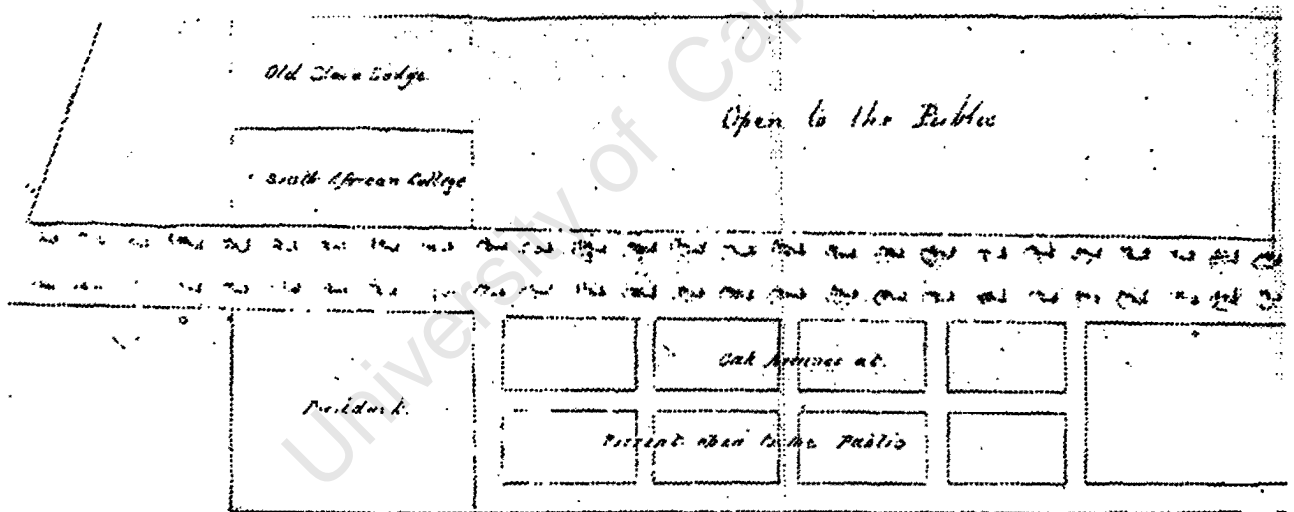 University of Cap
Old Slave Lodge
Open to the Public
South African College
Oak Avenues at
Present open to the Public